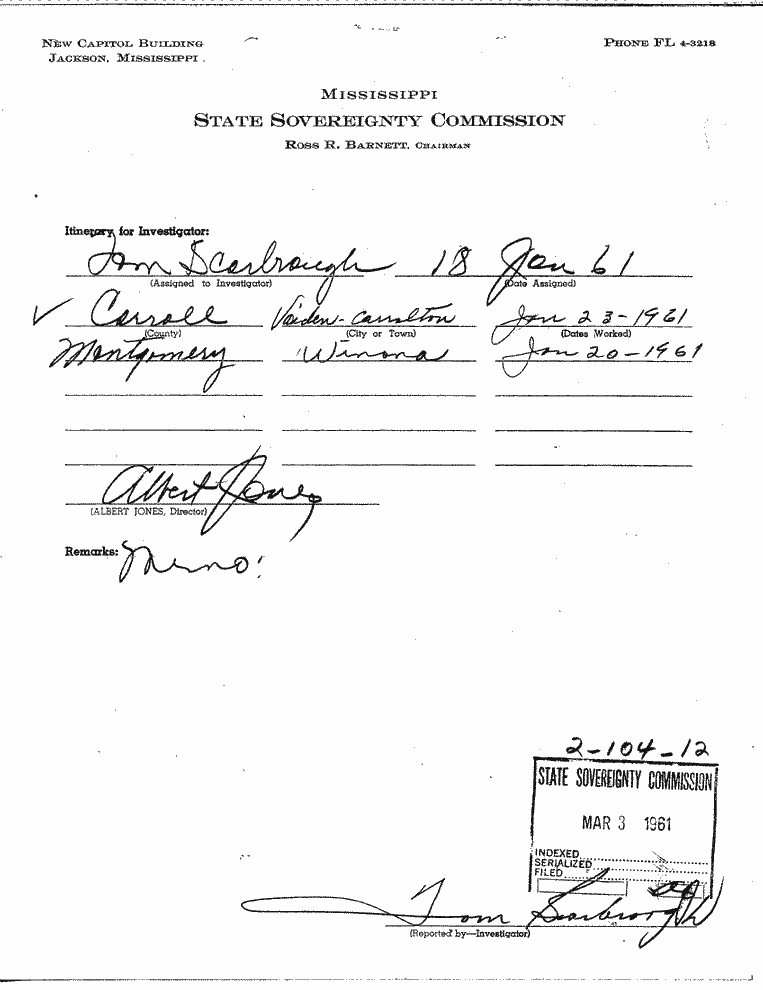 NEW CAPITOL BUILDING
JACKSON, MISSISSIPPI.
PHONE FL 4-3218
MISSISSIPPI
STATE SOVEREIGNTY COMMISSION
ROSS R. BARNETT, CHAIRMAN
Itinerary for Investigator:
Tom Scarbrough 18 Jan 61
(Assigned to Investigator) (Date Assigned)
✓ Carroll Vaiden-Carrollton Jan 23-1961
(County) (City or Town) (Dates Worked)
Montgomery Winona Jan 20-1961
Albert Jones
(ALBERT JONES, Director)
Remarks: Memo!
2-104-12
STATE SOVEREIGNTY COMMISSION
MAR 3 1961
INDEXED
SERIALIZED
FILED
Tom Scarbrough
(Reported by—Investigator)